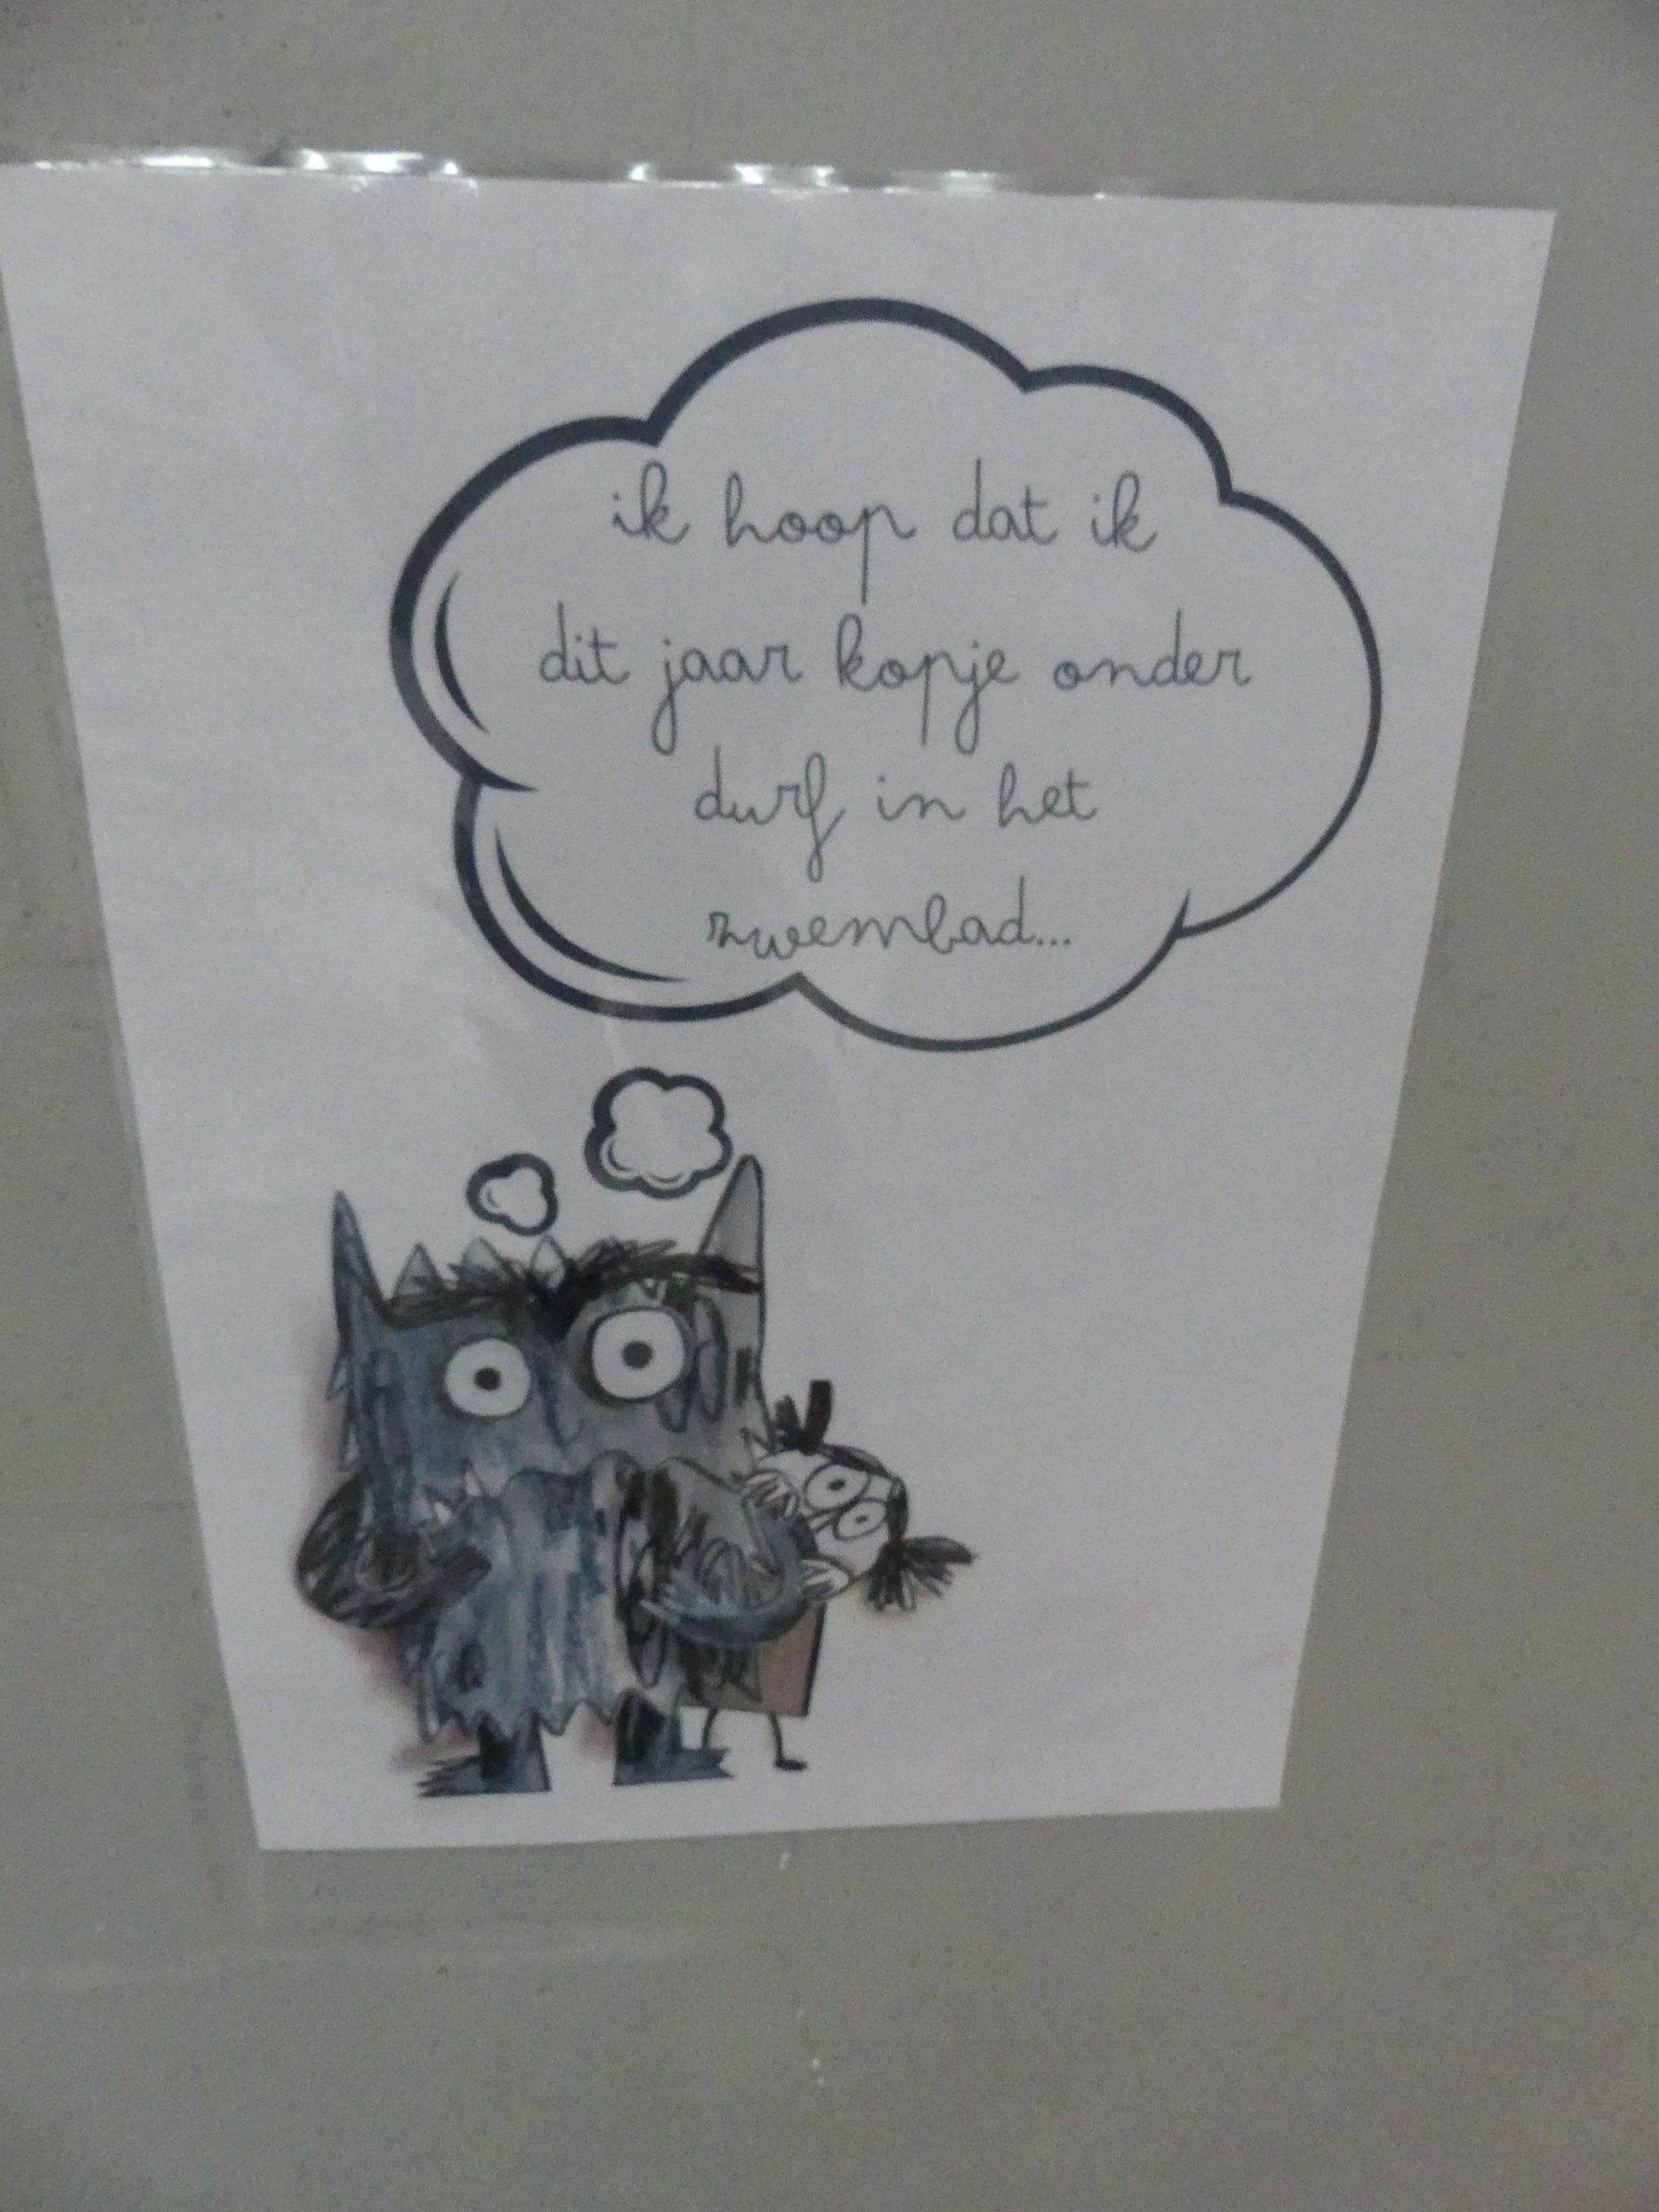 ik hoop dat ik
dit jaar kopje onder
durf in het
zwembad...